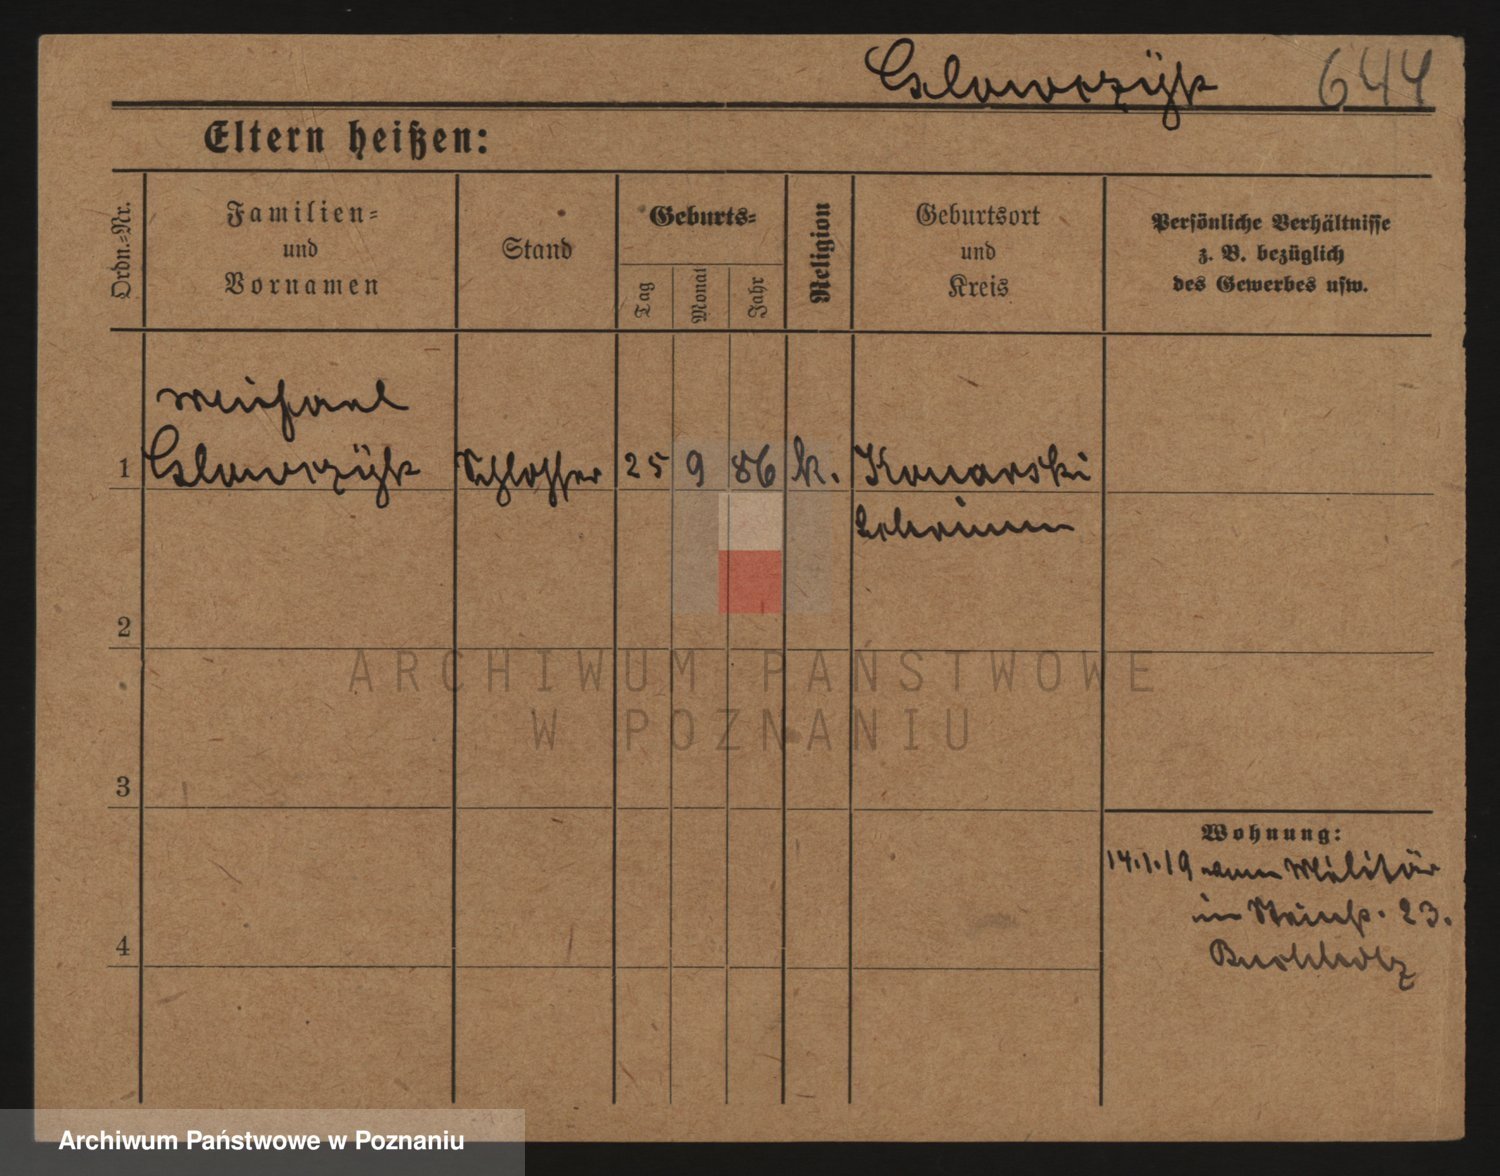 644
Eltern heißen:
Ordn.=Nr.
Familien=
und
Vornamen
Stand
Geburts=
Tag
Monat
Jahr
Religion
Geburtsort
und
Kreis
Persönliche Verhältnisse
z. B. bezüglich
des Gewerbes usw.
Michael
1 Schlosser 25 9 86 k. Konarski
Schrimm
2
3
4
Wohnung:
14.1.19 vom Militär
23.
Buchholz
ARCHIWUM PAŃSTWOWE
W POZNANIU
Archiwum Państwowe w Poznaniu